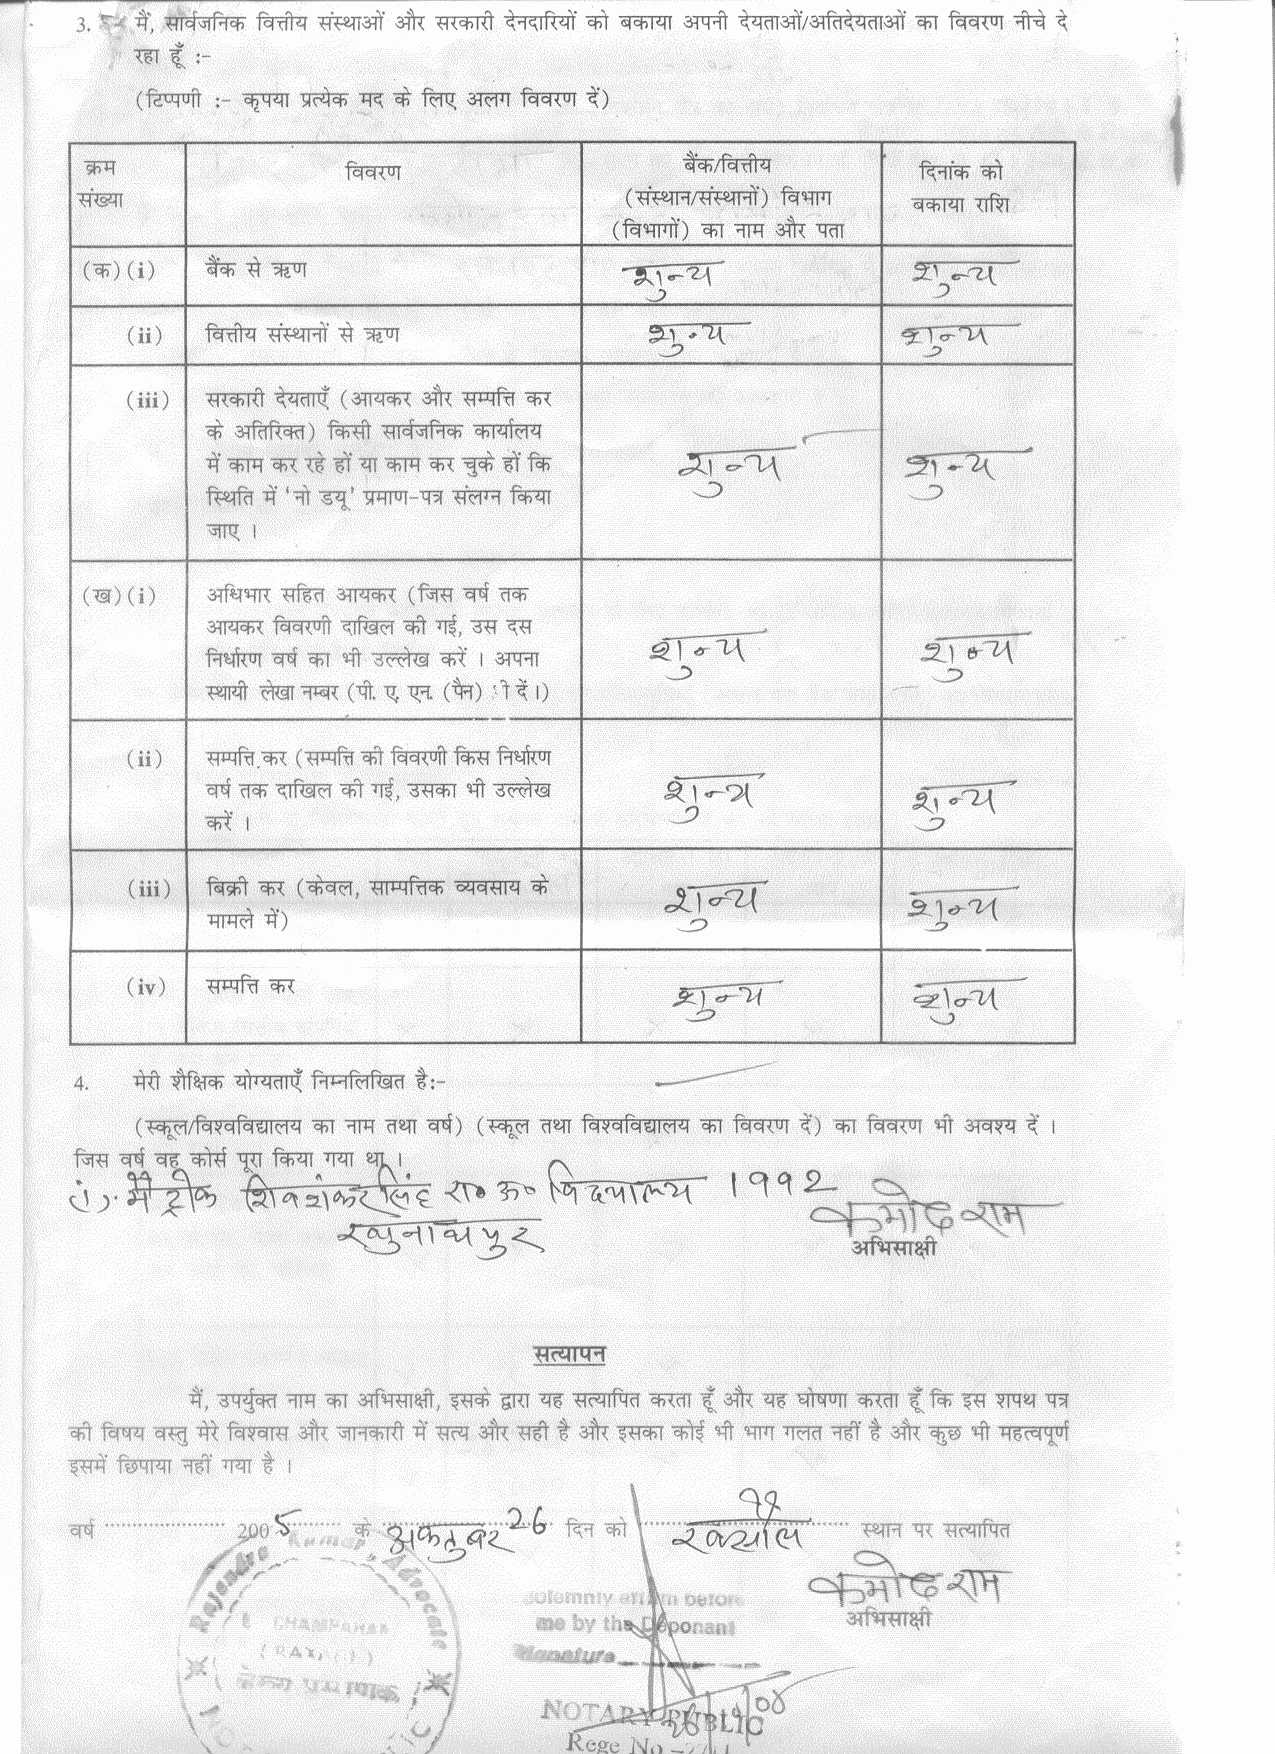 3. मैं, सार्वजनिक वित्तीय संस्थाओं और सरकारी देनदारियों को बकाया अपनी देयताओं/अतिदेयताओं का विवरण नीचे दे
रहा हूँ :-
(टिप्पणी :- कृपया प्रत्येक मद के लिए अलग विवरण दें)
क्रम संख्या विवरण बैंक/वित्तीय (संस्थान/संस्थानों) विभाग (विभागों) का नाम और पता दिनांक को बकाया राशि
(क) (i) बैंक से ऋण शुन्य शुन्य
(ii) वित्तीय संस्थानों से ऋण शुन्य शुन्य
(iii) सरकारी देयताएँ (आयकर और सम्पत्ति कर
के अतिरिक्त) किसी सार्वजनिक कार्यालय
में काम कर रहे हों या काम कर चुके हों कि शुन्य शुन्य
स्थिति में 'नो डयू' प्रमाण-पत्र संलग्न किया
जाए ।
(ख) (i) अधिभार सहित आयकर (जिस वर्ष तक
आयकर विवरणी दाखिल की गई, उस दस
निर्धारण वर्ष का भी उल्लेख करें । अपना शुन्य शुन्य
स्थायी लेखा नम्बर (पी. ए. एन. (पैन) भी दें।)
(ii) सम्पत्ति कर (सम्पत्ति की विवरणी किस निर्धारण
वर्ष तक दाखिल की गई, उसका भी उल्लेख शुन्य शुन्य
करें ।
(iii) बिक्री कर (केवल, साम्पत्तिक व्यवसाय के शुन्य शुन्य
मामले में)
(iv) सम्पत्ति कर शुन्य शुन्य
4. मेरी शैक्षिक योग्यताएँ निम्नलिखित है:-
(स्कूल/विश्वविद्यालय का नाम तथा वर्ष) (स्कूल तथा विश्वविद्यालय का विवरण दें) का विवरण भी अवश्य दें ।
जिस वर्ष वह कोर्स पूरा किया गया था ।
मैट्रीक शिवशंकर सिंह रा० उ० विद्यालय 1992
रघुनाथपुर
कमोद राम
अभिसाक्षी
सत्यापन
मैं, उपर्युक्त नाम का अभिसाक्षी, इसके द्वारा यह सत्यापित करता हूँ और यह घोषणा करता हूँ कि इस शपथ पत्र
की विषय वस्तु मेरे विश्वास और जानकारी में सत्य और सही है और इसका कोई भी भाग गलत नहीं है और कुछ भी महत्वपूर्ण
इसमें छिपाया नहीं गया है ।
वर्ष 2005 के अकतुबर 26 दिन को रक्सौल स्थान पर सत्यापित
कमोद राम
अभिसाक्षी
Rajendra Kumar, Advocate
CHAMPARAN
Solemnly affirm before
me by the Deponant
Signature
NOTARY PUBLIC
Rege No.-